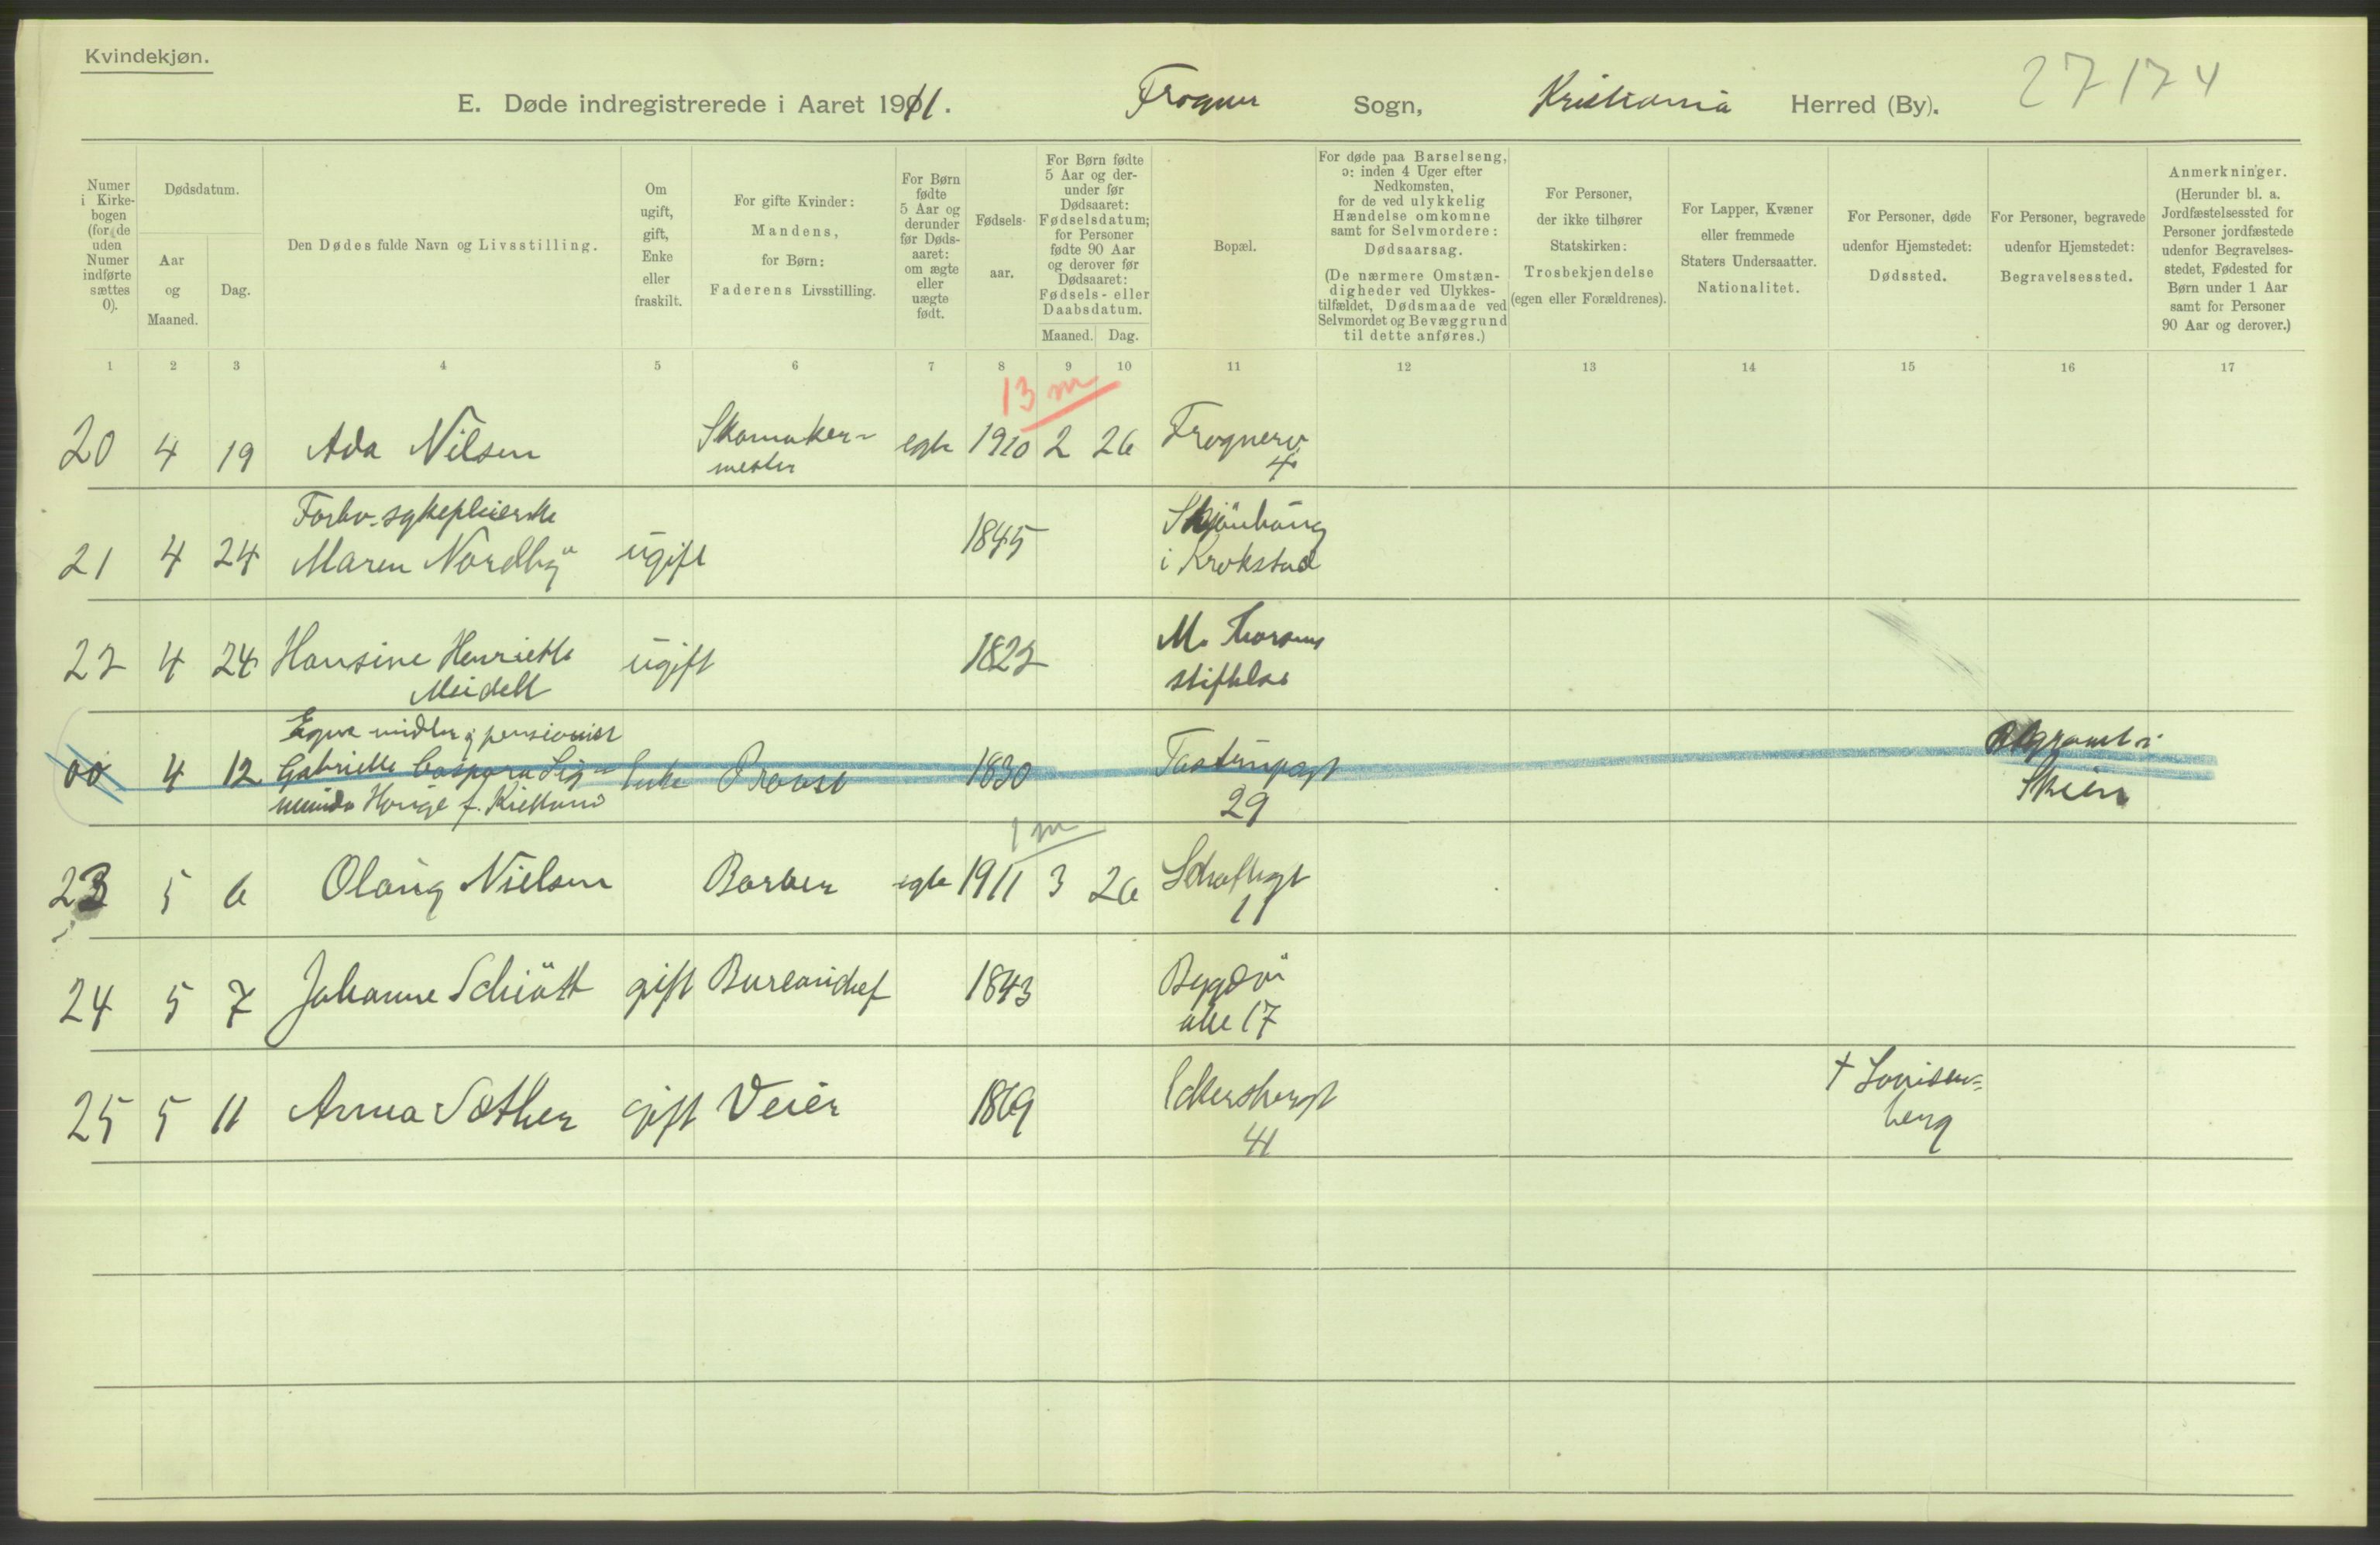 Kvindekjøn.
E. Døde indregistrerede i Aaret 1911. Frogner Sogn, Kristiania Herred (By).
27174
Numer i Kirkebogen (for de uden Numer indførte sættes 0).
Dødsdatum.
Aar og Maaned.
Dag.
Den Dødes fulde Navn og Livsstilling.
Om ugift, gift, Enke eller fraskilt.
For gifte Kvinder: Mandens, for Børn: Faderens Livsstilling.
For Børn fødte 5 Aar og derunder før Dødsaaret: om ægte eller uægte født.
Fødselsaar.
For Børn fødte 5 Aar og derunder før Dødsaaret: Fødselsdatum; for Personer fødte 90 Aar og derover før Dødsaaret: Fødsels- eller Daabsdatum.
Maaned. Dag.
Bopæl.
For døde paa Barselseng, ɔ: inden 4 Uger efter Nedkomsten, for de ved ulykkelig Hændelse omkomne samt for Selvmordere: Dødsaarsag. (De nærmere Omstændigheder ved Ulykkestilfældet, Dødsmaade ved Selvmordet og Bevæggrund til dette anføres.)
For Personer, der ikke tilhører Statskirken: Trosbekjendelse (egen eller Forældrenes).
For Lapper, Kvæner eller fremmede Staters Undersaatter. Nationalitet.
For Personer, døde udenfor Hjemstedet: Dødssted.
For Personer, begravede udenfor Hjemstedet: Begravelsessted.
Anmerkninger. (Herunder bl. a. Jordfæstelsessted for Personer jordfæstede udenfor Begravelsesstedet, Fødested for Børn under 1 Aar samt for Personer 90 Aar og derover.)
1 2 3 4 5 6 7 8 9 10 11 12 13 14 15 16 17
13 m
20 4 19 Ada Nilsen Skomaker- egte 1910 2 26 Frognerv.
mester 4
Forhv. sykepleierske
21 4 24 Maren Nordby ugift 1845
i Krokstad
22 4 24 Hansine Henriette ugift 1822 M. Thorsens
Meidell stiftelse
Egne midler & pensionist
00 4 12 Gabrielle Caspara Sig- Enke Provst 1830 29
f. Kielland Skien
1 m
23 5 6 Olaug Nielsen Barber egte 1911 3 26 Schaftlgt
11
24 5 7 Johanne Schiött gift Bureauchef 1843 Bygdö
alle 17
25 5 11 Anna Sæther gift Veier 1869 Eckersbergt † Lovisen-
41 berg